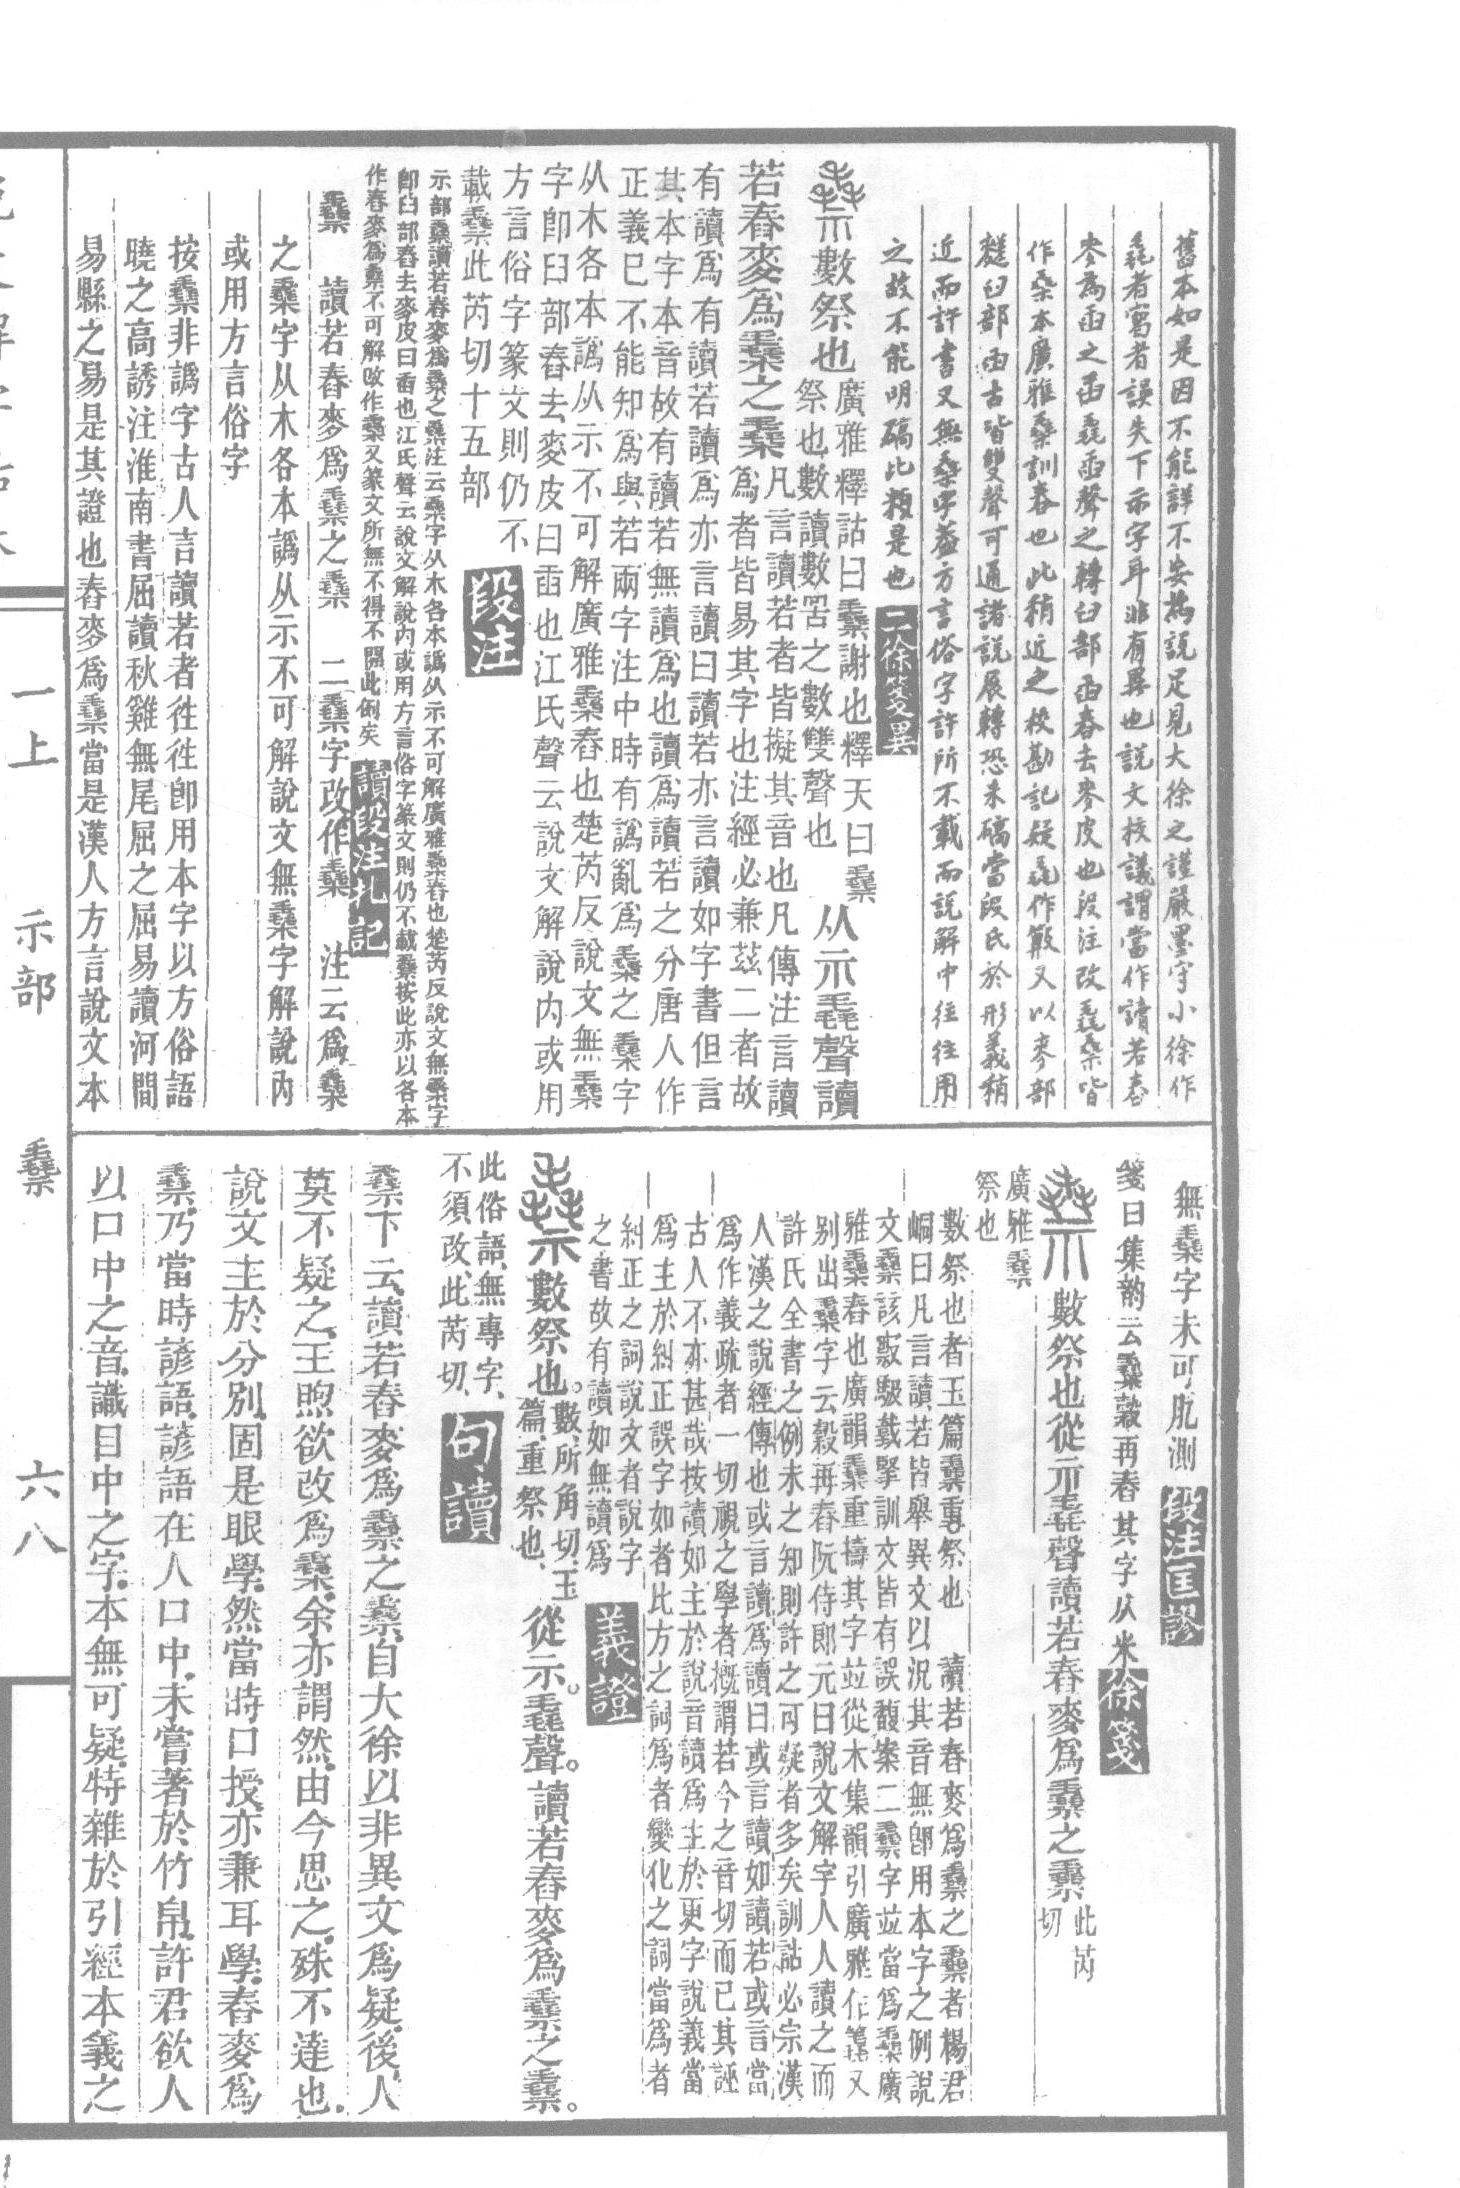 舊本如是因不能詳不安舊說足見大徐之謹嚴墨守小徐作
毳者寫者誤失下示字耳非有異也說文校議謂當作讀若舂
麥為臿之臿毳臿聲之轉臼部臿舂去麥皮也段注改毳桑皆
作桑本廣雅桑訓舂也此稍近之校勘記疑毳作䉤又以麥部
䴬臼部臿古皆雙聲可通諸說展轉恐未碻當段氏於形義稍
近而許書又無桑字蓋方言俗字許所不載而說解中往往用
之故不能明碻比類是也 二徐箋異
數祭也 廣雅釋詁曰𥜽謝也釋天曰𥜽
祭也數讀數罟之數雙聲也 从示毳聲讀
若舂麥爲𥜽之𥜽 凡言讀若者皆擬其音也凡傳注言讀
爲者皆易其字也注經必兼茲二者故
有讀爲有讀若讀爲亦言讀曰讀若亦言讀如字書但言
其本字本音故有讀若無讀爲也讀爲讀若之分唐人作
正義已不能知爲與若兩字注中時有譌亂爲𣯍之𣯍字
从木各本譌从示不可解廣雅𣯍舂也楚芮反說文無𣯍
字卽臼部舂去麥皮曰臿也江氏聲云說文解說内或用
方言俗字篆文則仍不
載𣯍此芮切十五部 段注
示部𥜽讀若舂麥爲𥜽之𥜽注云𣯍字从木各本譌从示不可解廣雅𣯍舂也楚芮反說文無𣯍字
卽臼部舂去麥皮曰臿也江氏聲云說文解說内或用方言俗字篆文則仍不載𣯍按此亦以各本
作舂麥爲𥜽不可解改作𣯍又篆文所無不得不開此例矣 讀段注札記
𥜽 讀若舂麥爲𥜽之𥜽 二𥜽字改作𣯍 注云爲𣯍
之𣯍字从木各本譌从示不可解說文無𣯍字解說内
或用方言俗字
按𥜽非譌字古人言讀若者往往卽用本字以方俗語
曉之高誘注淮南書屈讀秋雞無尾屈之屈易讀河間
易縣之易是其證也舂麥爲𥜽當是漢人方言說文本
無𣯍字未可肊測 段注匡謬
箋曰集韵云𣯍穀再舂其字从米 徐箋
數祭也從示毳聲讀若舂麥爲𥜽之𥜽 此芮
切
廣雅𥜽
祭也
數祭也者玉篇𥜽重祭也 讀若舂麥爲𥜽之𥜽者楊君
峒曰凡言讀若皆舉異文以況其音無卽用本字之例說
文𥜽該㱾毅㲃掔訓文皆有誤馥案二𥜽字竝當爲𣯍廣
雅𣯍舂也廣韻𥜽重擣其字竝從木集韻引廣雅作𣯍又
别出𣯍字云穀再舂阮侍郎元曰說文解字人人讀之而
許氏全書之例未之知則許之可疑者多矣訓詁必宗漢
人漢之說經傳也或言讀爲讀曰或言讀如讀若或言當
爲作義疏者一切視之學者槪謂若今之音切而已其誣
古人不亦甚哉按讀如主於說音讀爲主於更字說義當
爲主於糾正誤字如者比方之詞爲者變化之詞當爲者
糾正之詞說文者說字
之書故有讀如無讀爲 義證
數祭也。數、所角切、玉
篇、重祭也、 從示。毳聲。讀若舂麥爲𥜽之𥜽。
此俗語、無專字、
不須改、此芮切、 句讀
𥜽下云、讀若舂麥爲𥜽之𥜽、自大徐以非異文爲疑、後人
莫不疑之、王煦欲改爲𣯍、余亦謂然、由今思之、殊不達也、
說文主於分別、固是眼學、然當時口授、亦兼耳學、舂麥爲
𥜽、乃當時諺語、諺語在人口中、未嘗著於竹帛、許君欲人
以口中之音、識目中之字、本無可疑、特雜於引經本義之
一上 示部 𥜽 六八